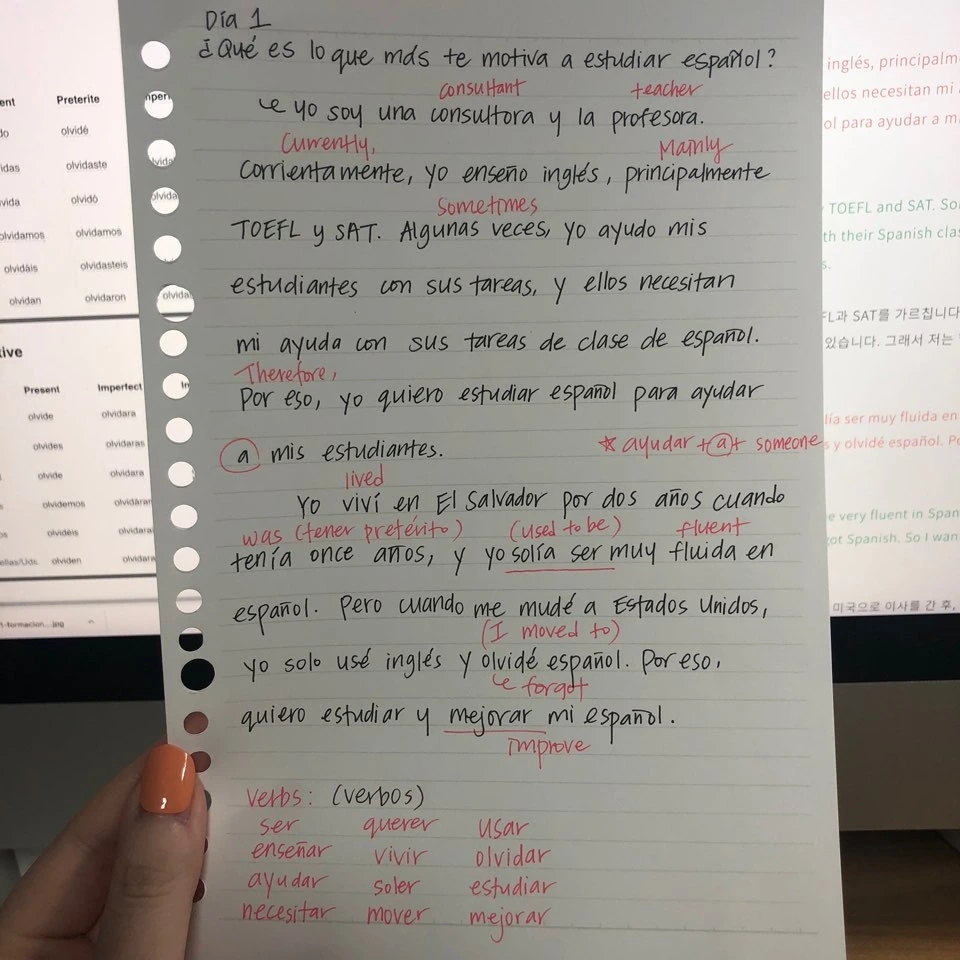 Día 1
¿Qué es lo que más te motiva a estudiar español?
consultant teacher
yo soy una consultora y la profesora.
Currently, Mainly
Corrientamente, yo enseño inglés, principalmente
sometimes
TOEFL y SAT. Algunas veces, yo ayudo mis
estudiantes con sus tareas, y ellos necesitan
mi ayuda con sus tareas de clase de español.
Therefore,
Por eso, yo quiero estudiar español para ayudar
a mis estudiantes. ★ ayudar + a + someone
lived
Yo viví en El Salvador por dos años cuando
was (tener pretérito) (used to be) fluent
tenía once años, y yo solía ser muy fluida en
español. Pero cuando me mudé a Estados Unidos,
(I moved to)
yo solo usé inglés y olvidé español. Por eso,
forgot
quiero estudiar y mejorar mi español.
improve
Verbs: (verbos)
ser querer usar
enseñar vivir olvidar
ayudar soler estudiar
necesitar mover mejorar
Preterite
olvidé
olvidaste
olvidó
olvidamos olvidamos
olvidáis olvidasteis
olvidan olvidaron
Present Imperfect
olvide olvidara
olvides olvidaras
olvide olvidara
olvidemos
olvidéis
ellas/Uds. olviden
inglés,
ellos necesitan mi
para ayudar a
TOEFL and SAT.
their Spanish
SAT를 가르칩니다
있습니다. 그래서 저는
ser muy fluida en
y olvidé español.
very fluent in
Spanish. So I
미국으로 이사를 간 후,